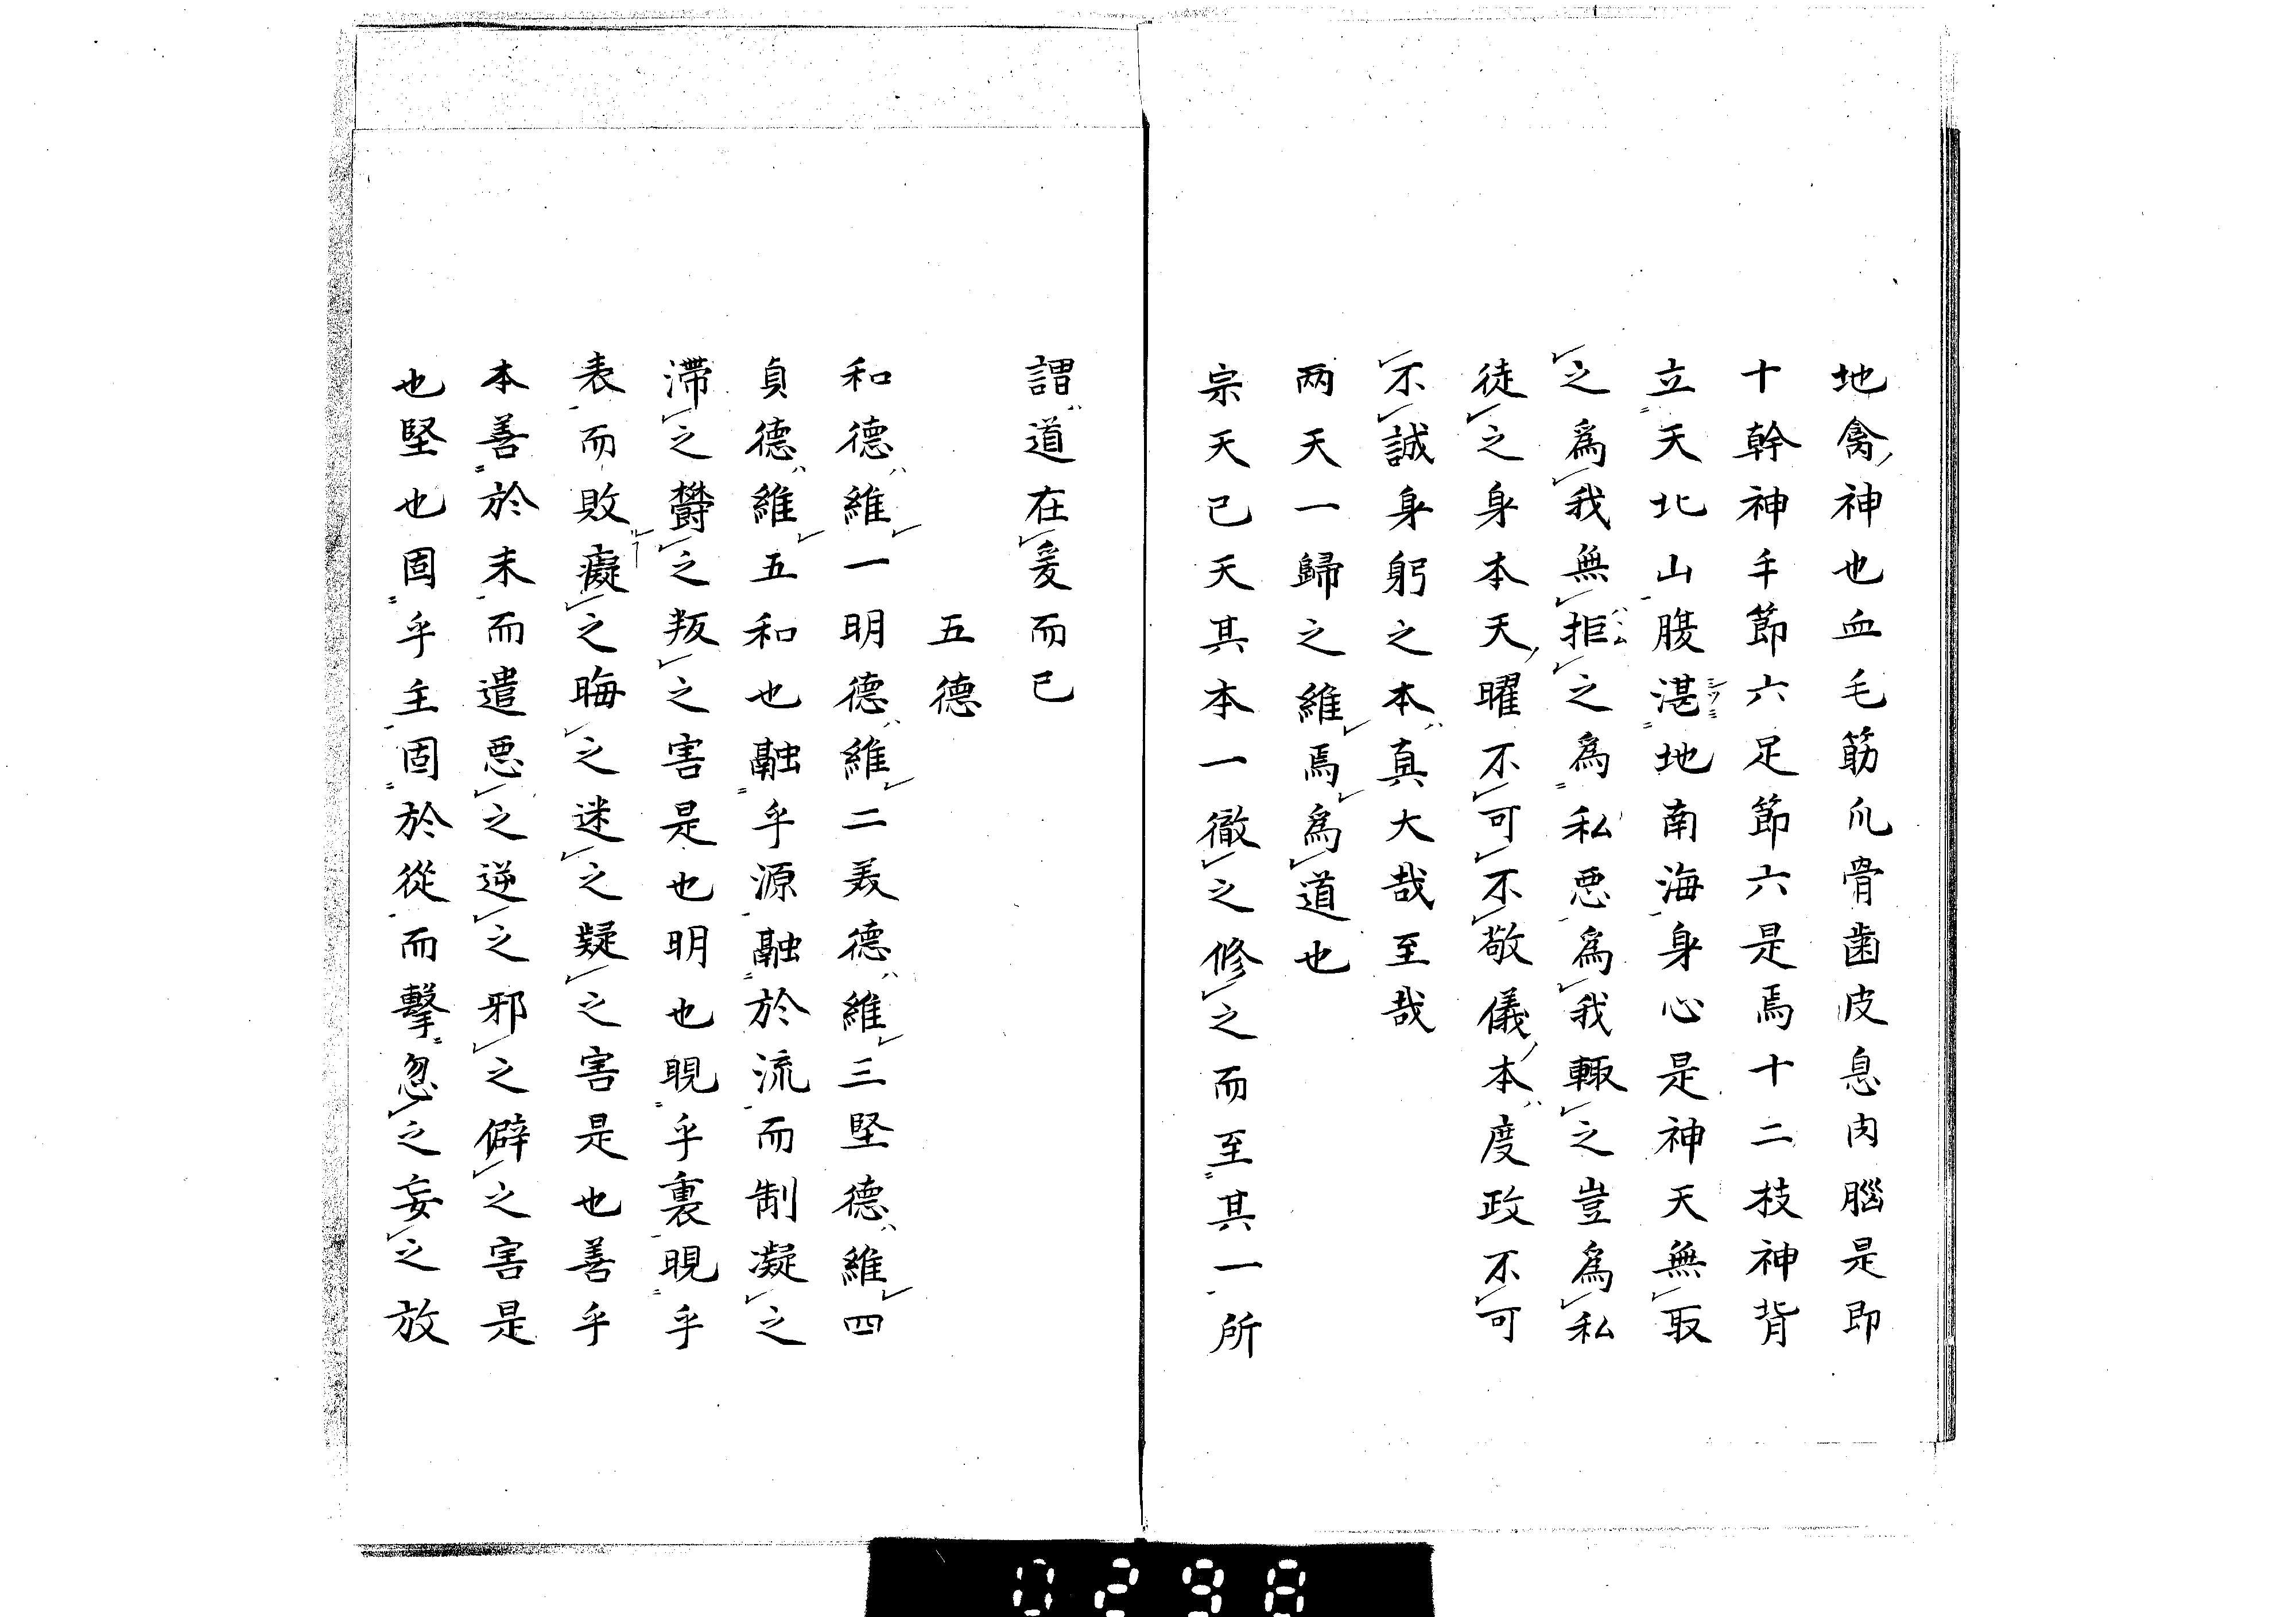 地禽神也血毛筋爪骨歯皮息肉腦是即
十幹神手節六足節六是焉十二枝神背
立天北山腹湛地南海身心是神天無取
之爲我無拒之爲私悪爲我輙之豈爲私
徒之身本天曜不可不敬儀本度政不可
不誠身躬之本真大哉至哉
两天一歸之維焉爲道也
宗天已天其本一徹之修之而至其一所
謂道在爰而已
五德
和德維一明德維二美德維三堅德維四
貞德維五和也融乎源融於流而制凝之
滞之欝之叛之害是也明也睍乎裏睍乎
表而敗癡之晦之迷之疑之害是也善乎
本善於末而遣悪之逆之邪之僻之害是
也堅也固乎主固於從而擊忽之妄之放
0298